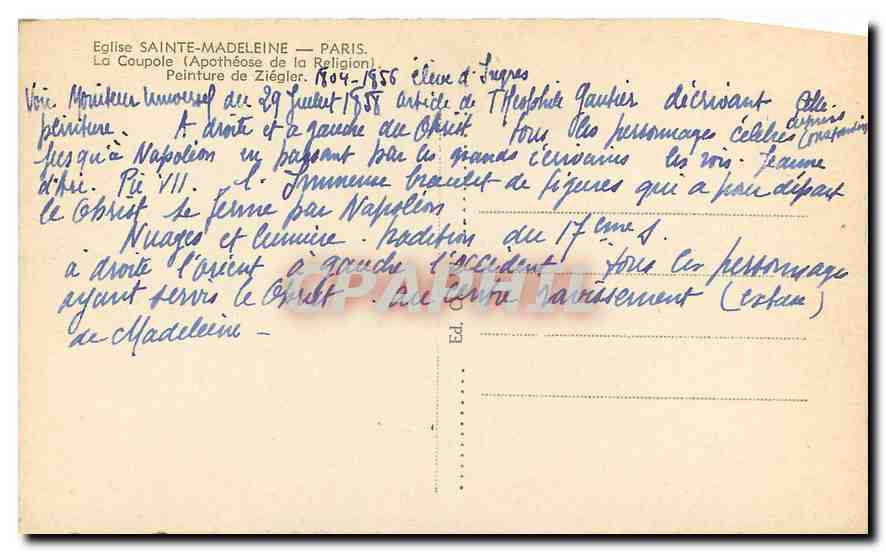 Eglise SAINTE-MADELEINE — PARIS.
La Coupole (Apothéose de la Religion).
Peinture de Ziégler. 1804-1856 élève d'Ingres
Voir Moniteur Universel du 29 Juillet 1858 article de Théophile Gautier décrivant cette
peinture. A droite et à gauche du Christ tous les personnages célèbres depuis Constantin
jusqu'à Napoléon en passant par les grands écrivains les rois. Jeanne
d'Arc. Pie VII. L'Immense bracelet de figures qui a pour départ
le Christ se ferme par Napoléon
Nuages et lumière. tradition du 17ème s.
à droite l'orient à gauche l'occident tous les personnages
ayant servis le Christ. au centre ravissement (extase)
de Madeleine —
Ed.
CPAPHIL